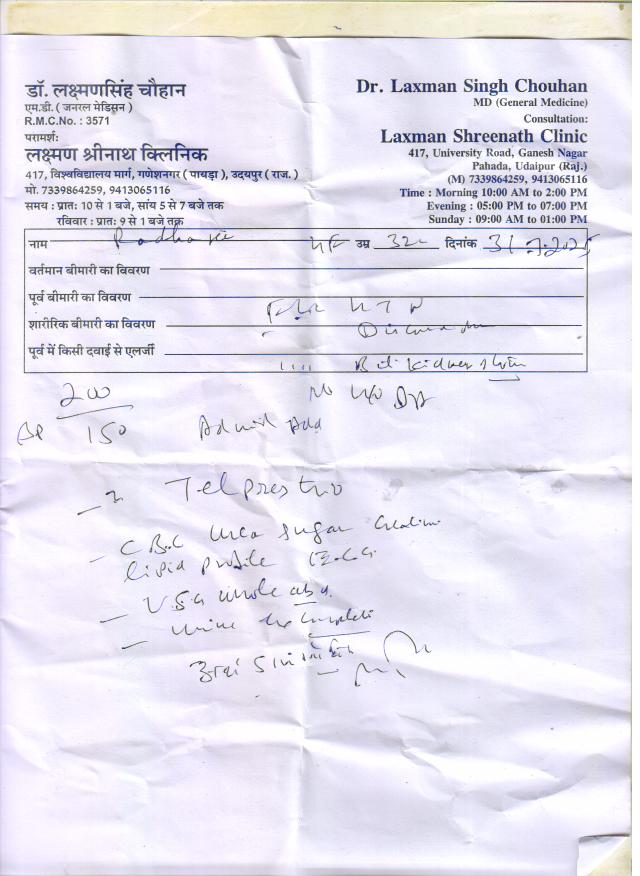 डॉ. लक्ष्मणसिंह चौहान
एम.डी. ( जनरल मेडिसन )
R.M.C.No. : 3571
परामर्श:
लक्ष्मण श्रीनाथ क्लिनिक
417, विश्वविद्यालय मार्ग, गणेशनगर ( पायड़ा ), उदयपुर ( राज. )
मो. 7339864259, 9413065116
समय : प्रात: 10 से 1 बजे, सांय 5 से 7 बजे तक
रविवार : प्रात: 9 से 1 बजे तक
Dr. Laxman Singh Chouhan
MD (General Medicine)
Consultation:
Laxman Shreenath Clinic
417, University Road, Ganesh Nagar
Pahada, Udaipur (Raj.)
(M) 7339864259, 9413065116
Time : Morning 10:00 AM to 2:00 PM
Evening : 05:00 PM to 07:00 PM
Sunday : 09:00 AM to 01:00 PM
नाम उम्र 32 दिनांक
वर्तमान बीमारी का विवरण
पूर्व बीमारी का विवरण
शारीरिक बीमारी का विवरण
पूर्व में किसी दवाई से एलर्जी
200
BP 150
Telpres trio
CBC Urea Sugar
lipid profile
USG whole abd.
urine